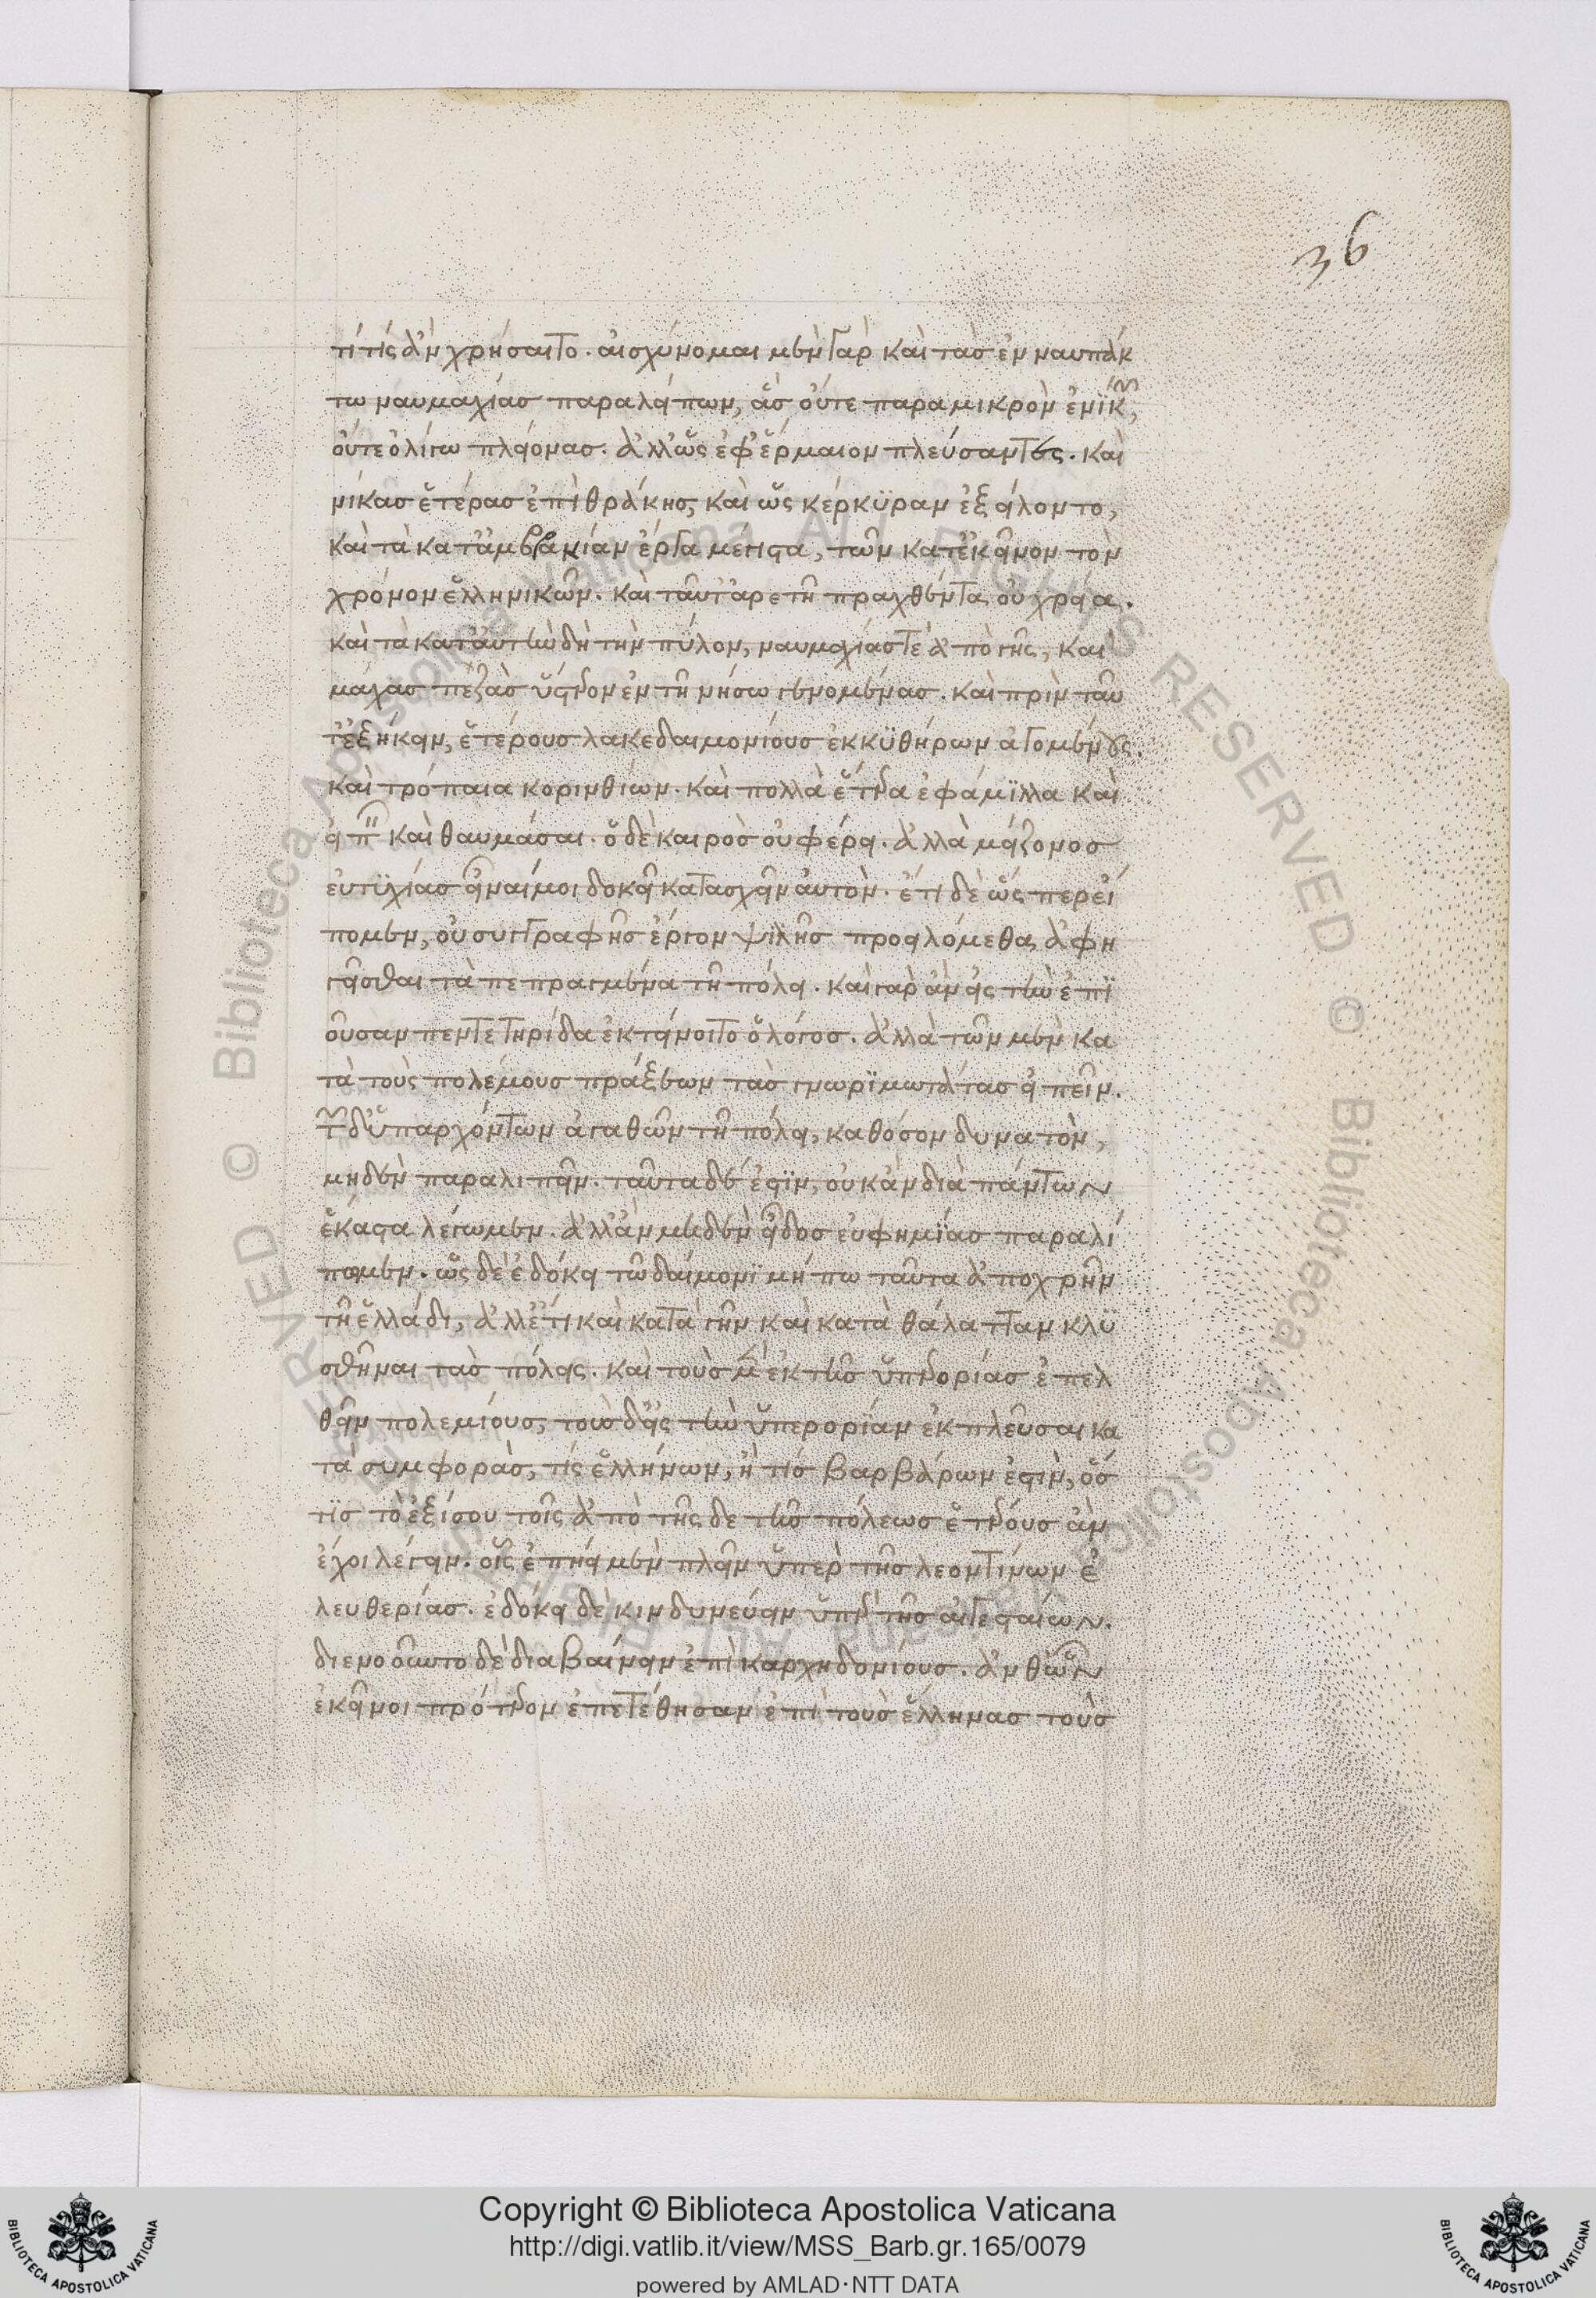 36
τί τίς ἂν χρήσαιτο. αἰσχύνομαι μὲν γὰρ καὶ τὰς ἐν ναυπάκ
τω ναυμαχίας παραλείπων, ἃς οὔτε παρα μικρὸν ἐνίκων,
οὔτε ὀλίγω πλείονας. ἀλλ' ὡς ἐφ' ἕρμαιον πλεύσαντες. καὶ
νίκας ἑτέρας ἐπὶ θράκης, καὶ ὡς κέρκϋραν ἐξείλοντο,
καὶ τὰ κατ' ἀμβρακίαν ἔργα μέγιστα, τῶν κατ' ἐκεῖνον τὸν
χρόνον ἑλληνικῶν. καὶ ταῦτ' ἀρετῆ πραχθέντα οὐ χρεία.
καὶ τὰ κατ' αὐτὴν δὴ τὴν πύλον, ναυμαχίας τὲ ἀπὸ γῆς, καὶ
μάχας πεζὰς ὕστερον ἐν τῆ νήσω γενομένας. καὶ πρὶν ταῦ
τ' ἐξήκειν, ἑτέρους λακεδαιμονίους ἐκ κϋθήρων ἀγομένους.
καὶ τρόπαια κορινθίων. καὶ πολλὰ ἕτερα ἐφάμϊλλα καὶ
εἰπεῖν καὶ θαυμάσαι. ὁ δὲ καιρὸς οὐ φέρει. ἀλλὰ μείζονος
εὐτϋχίας εἶναί μοι δοκεῖ κατασχεῖν αὐτὸν. ἔτι δὲ ὥς περ εἴ
πομεν, οὐ συγγραφῆς ἔργον ψϊλῆς προειλόμεθα, ἀφη
γεῖσθαι τὰ πεπραγμένα τῆ πόλει. καὶ γὰρ ἂν εἰς τὴν ἐπϊ
οῦσαν πεντετηρίδα ἐκτείνοιτο ὁ λόγος. ἀλλὰ τῶν μὲν κα
τὰ τοὺς πολέμους πράξεων τὰς γνωρϊμωτάτας εἰπεῖν.
τῶν δ' ὑπαρχόντων ἀγαθῶν τῆ πόλει, καθόσον δυνατὸν,
μηδὲν παραλιπεῖν. ταῦτα δέ ἐστϊν, οὐκ ἂν διὰ πάντων
ἕκαστα λέγωμεν. ἀλλ' ἂν μηδὲν εἶδος εὐφημϊας παραλί
πωμεν. ὡς δὲ ἐδόκει τῶ δαίμονϊ μήπω ταῦτα ἀποχρῆν
τῆ ἑλλάδι, ἀλλ' ἔτι καὶ κατὰ γῆν καὶ κατὰ θάλατταν κλϋ
σθῆναι τὰς πόλεις. καὶ τοὺς μὲν ἐκ τῆς ὑπερορίας ἐπελ
θεῖν πολεμίους, τοὺς δ' εἰς τὴν ὑπερορίαν ἐκπλεῦσαι κα
τὰ συμφορὰς, τίς ἑλλήνων, ἢ τίς βαρβάρων ἐστὶν, ὅσ
τϊς τὸ ἐξίσου τοῖς ἀπὸ τῆς δε τῆς πόλεως ἑτέρους ἂν
ἔχοι λέγειν. οἷς ἐπῄει μὲν πλεῖν ὑπὲρ τῆς λεοντίνων ἐ
λευθερίας. ἐδόκει δὲ κινδυνεύειν ὑπὲρ τῆς αἰγεσταίων.
διενοοῦντο δὲ διαβαίνειν ἐπὶ καρχηδονίους. ἀνθ' ὧν
ἐκεῖνοι πρότερον ἐπετέθησαν ἐπὶ τοὺς ἕλληνας τοὺς
Copyright © Biblioteca Apostolica Vaticana
http://digi.vatlib.it/view/MSS_Barb.gr.165/0079
powered by AMLAD·NTT DATA